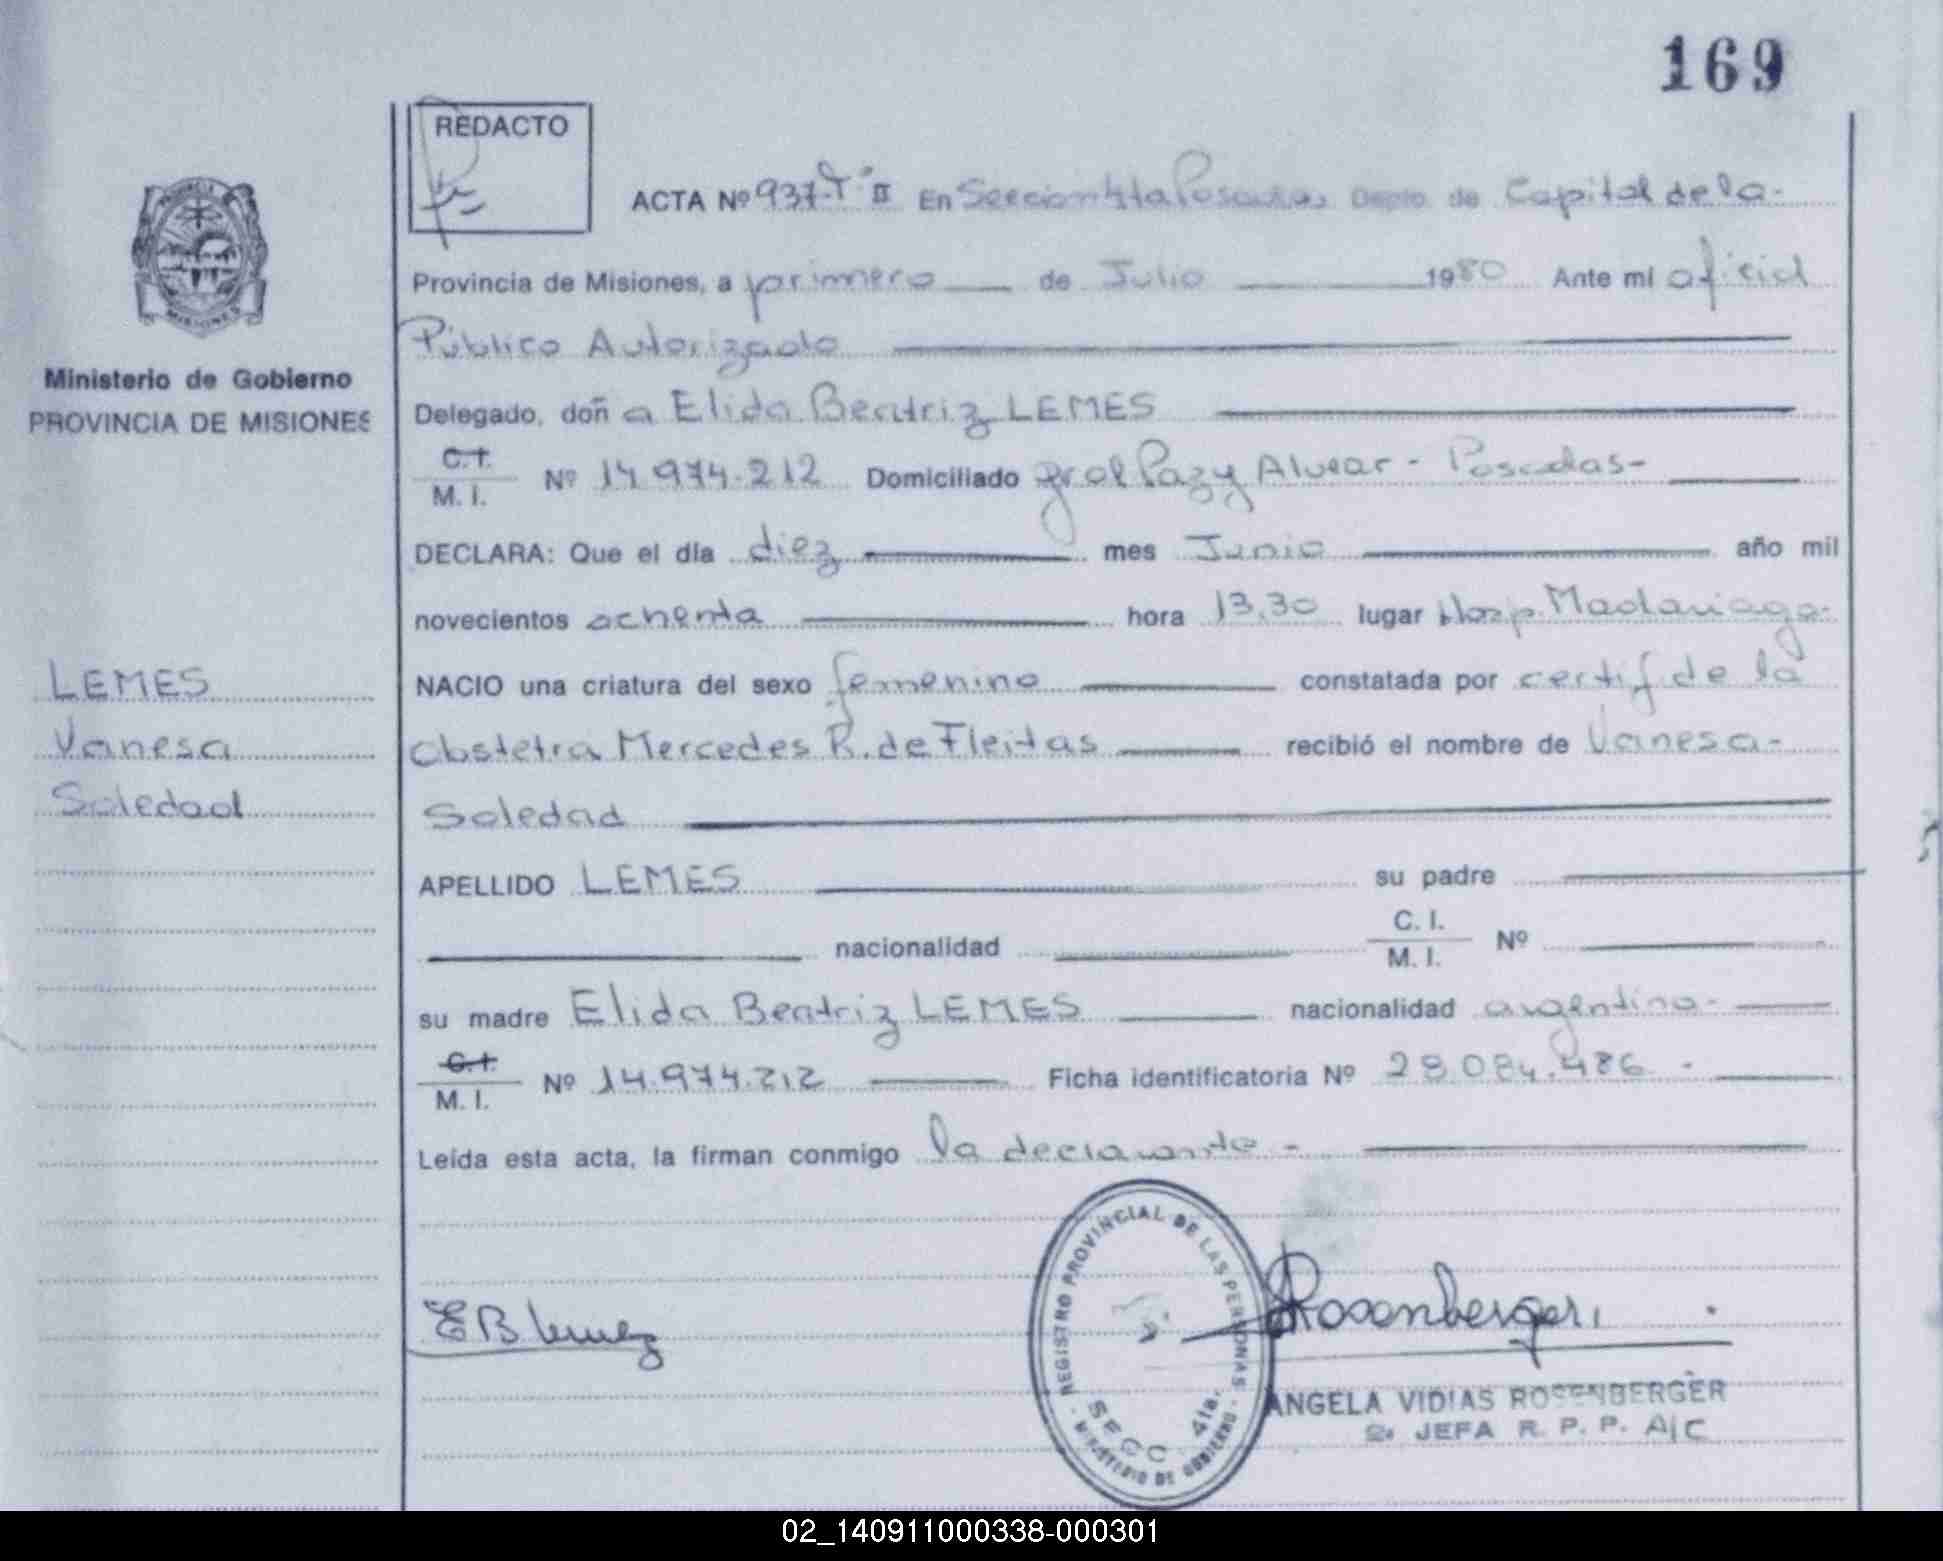 169
REDACTO
ACTA Nº 937-Tº II En Seccion 4ta Posadas Depto. de Capital de la
Provincia de Misiones, a primero de Julio 1980 Ante mi oficial
Público Autorizado
Ministerio de Gobierno
PROVINCIA DE MISIONES
Delegado, doña Elida Beatriz LEMES
C.I.
M. I. Nº 14.974.212 Domiciliado gral Paz y Alvear - Posadas-
DECLARA: Que el día diez mes Junio año mil
novecientos ochenta hora 13.30 lugar Hosp. Madariaga-
LEMES
Vanesa
Soledad
NACIO una criatura del sexo femenino constatada por certif de la
Obstetra Mercedes R. de Fleitas recibió el nombre de Vanesa-
Soledad
APELLIDO LEMES su padre
nacionalidad C. I.
M. I. Nº
su madre Elida Beatriz LEMES nacionalidad argentina-
C.I.
M. I. Nº 14.974.212 Ficha identificatoria Nº 28.084.486 -
Leída esta acta, la firman conmigo la declarante -
REGISTRO PROVINCIAL DE LAS PERSONAS
SECC. 4ta.
- MINISTERIO DE GOBIERNO -
E B Lemez
Rosenberger
ANGELA VIDIAS ROSENBERGER
2a JEFA R. P. P. A/C
02_140911000338-000301